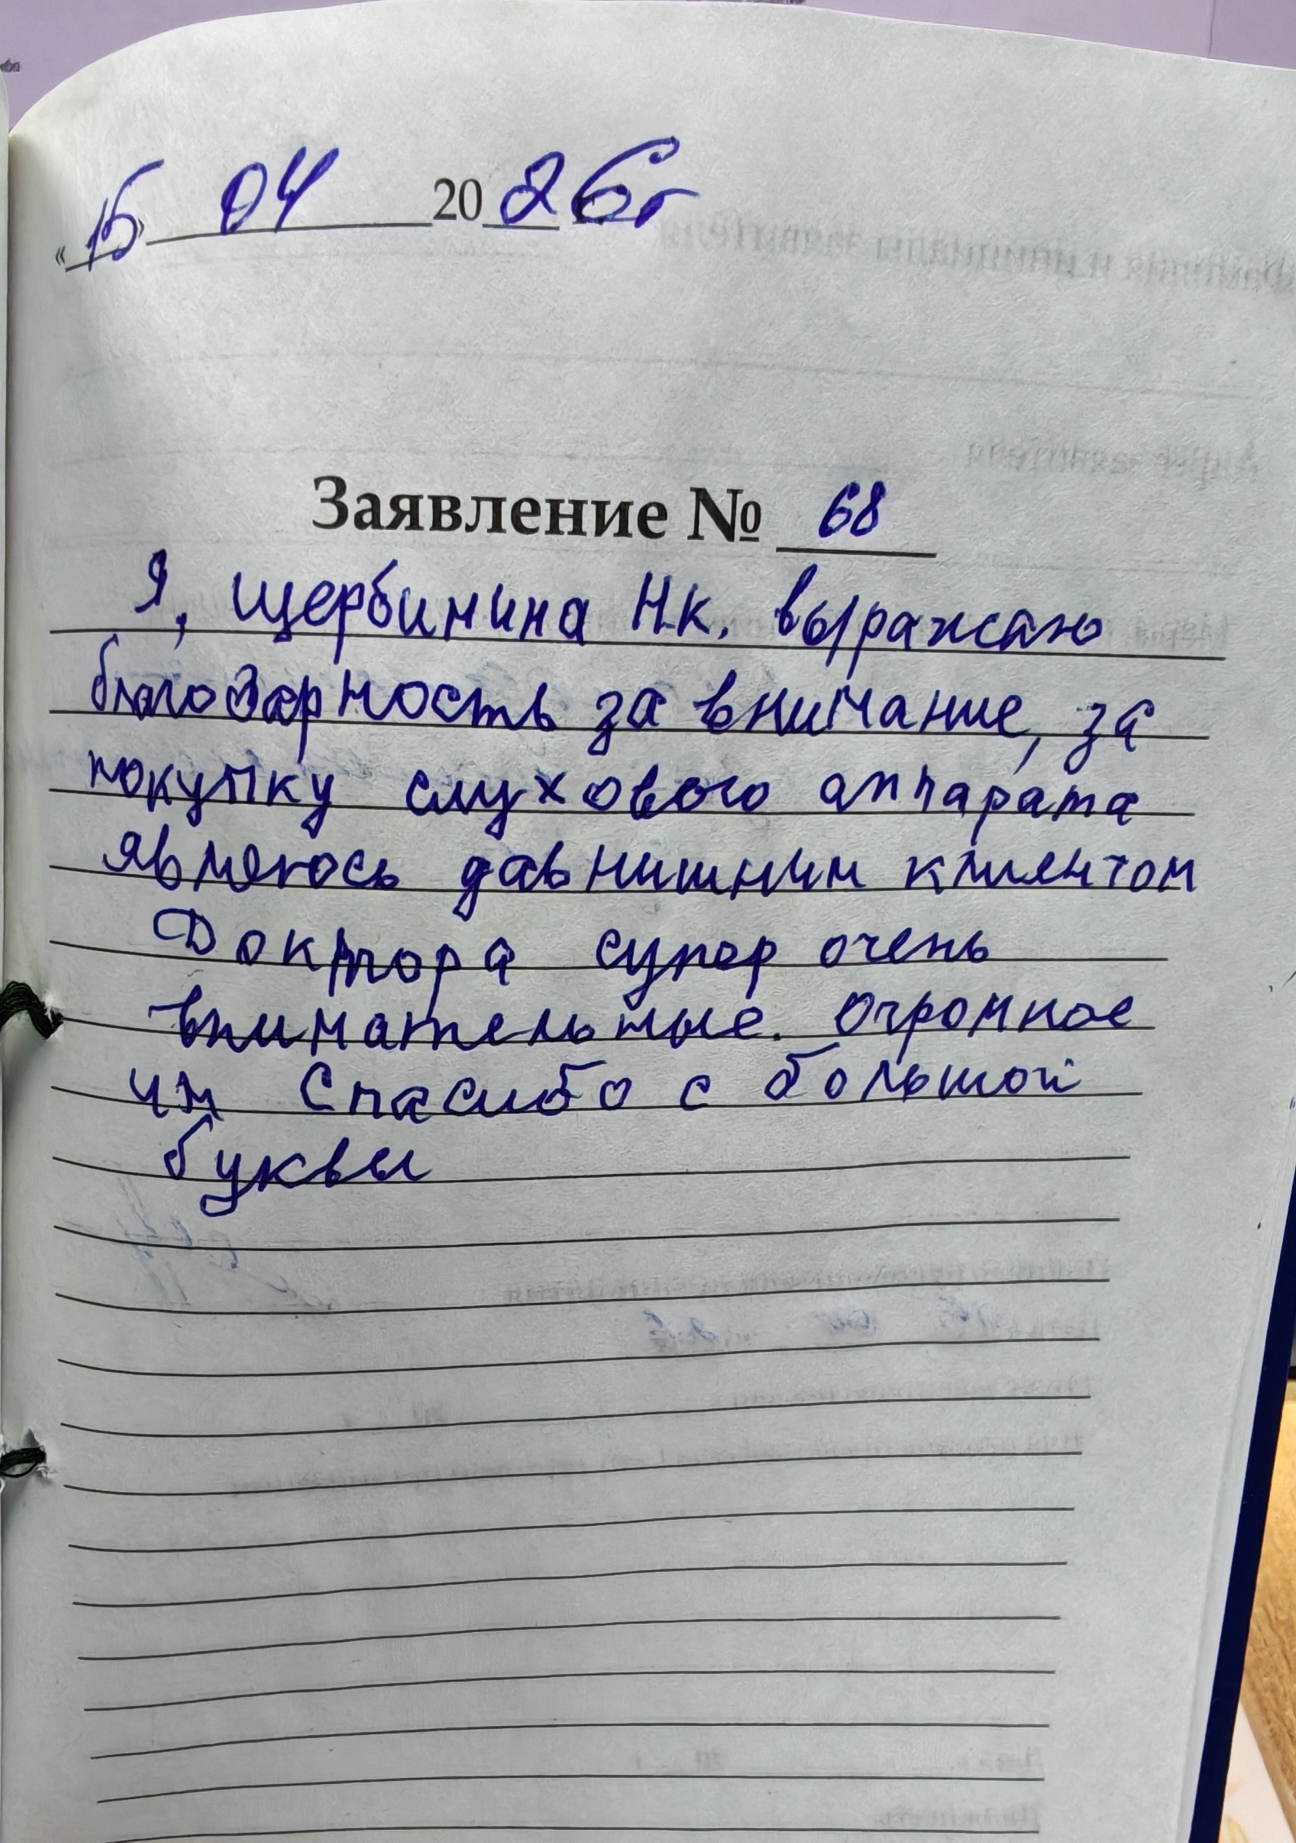 «15» 04 2026г
Заявление № 68
Я, Щербинина Н.К. выражаю
благодарность за внимание, за
покупку слухового аппарата
являюсь давнишним клиентом
Доктора супер очень
внимательные. Огромное
им Спасибо с большой
буквы